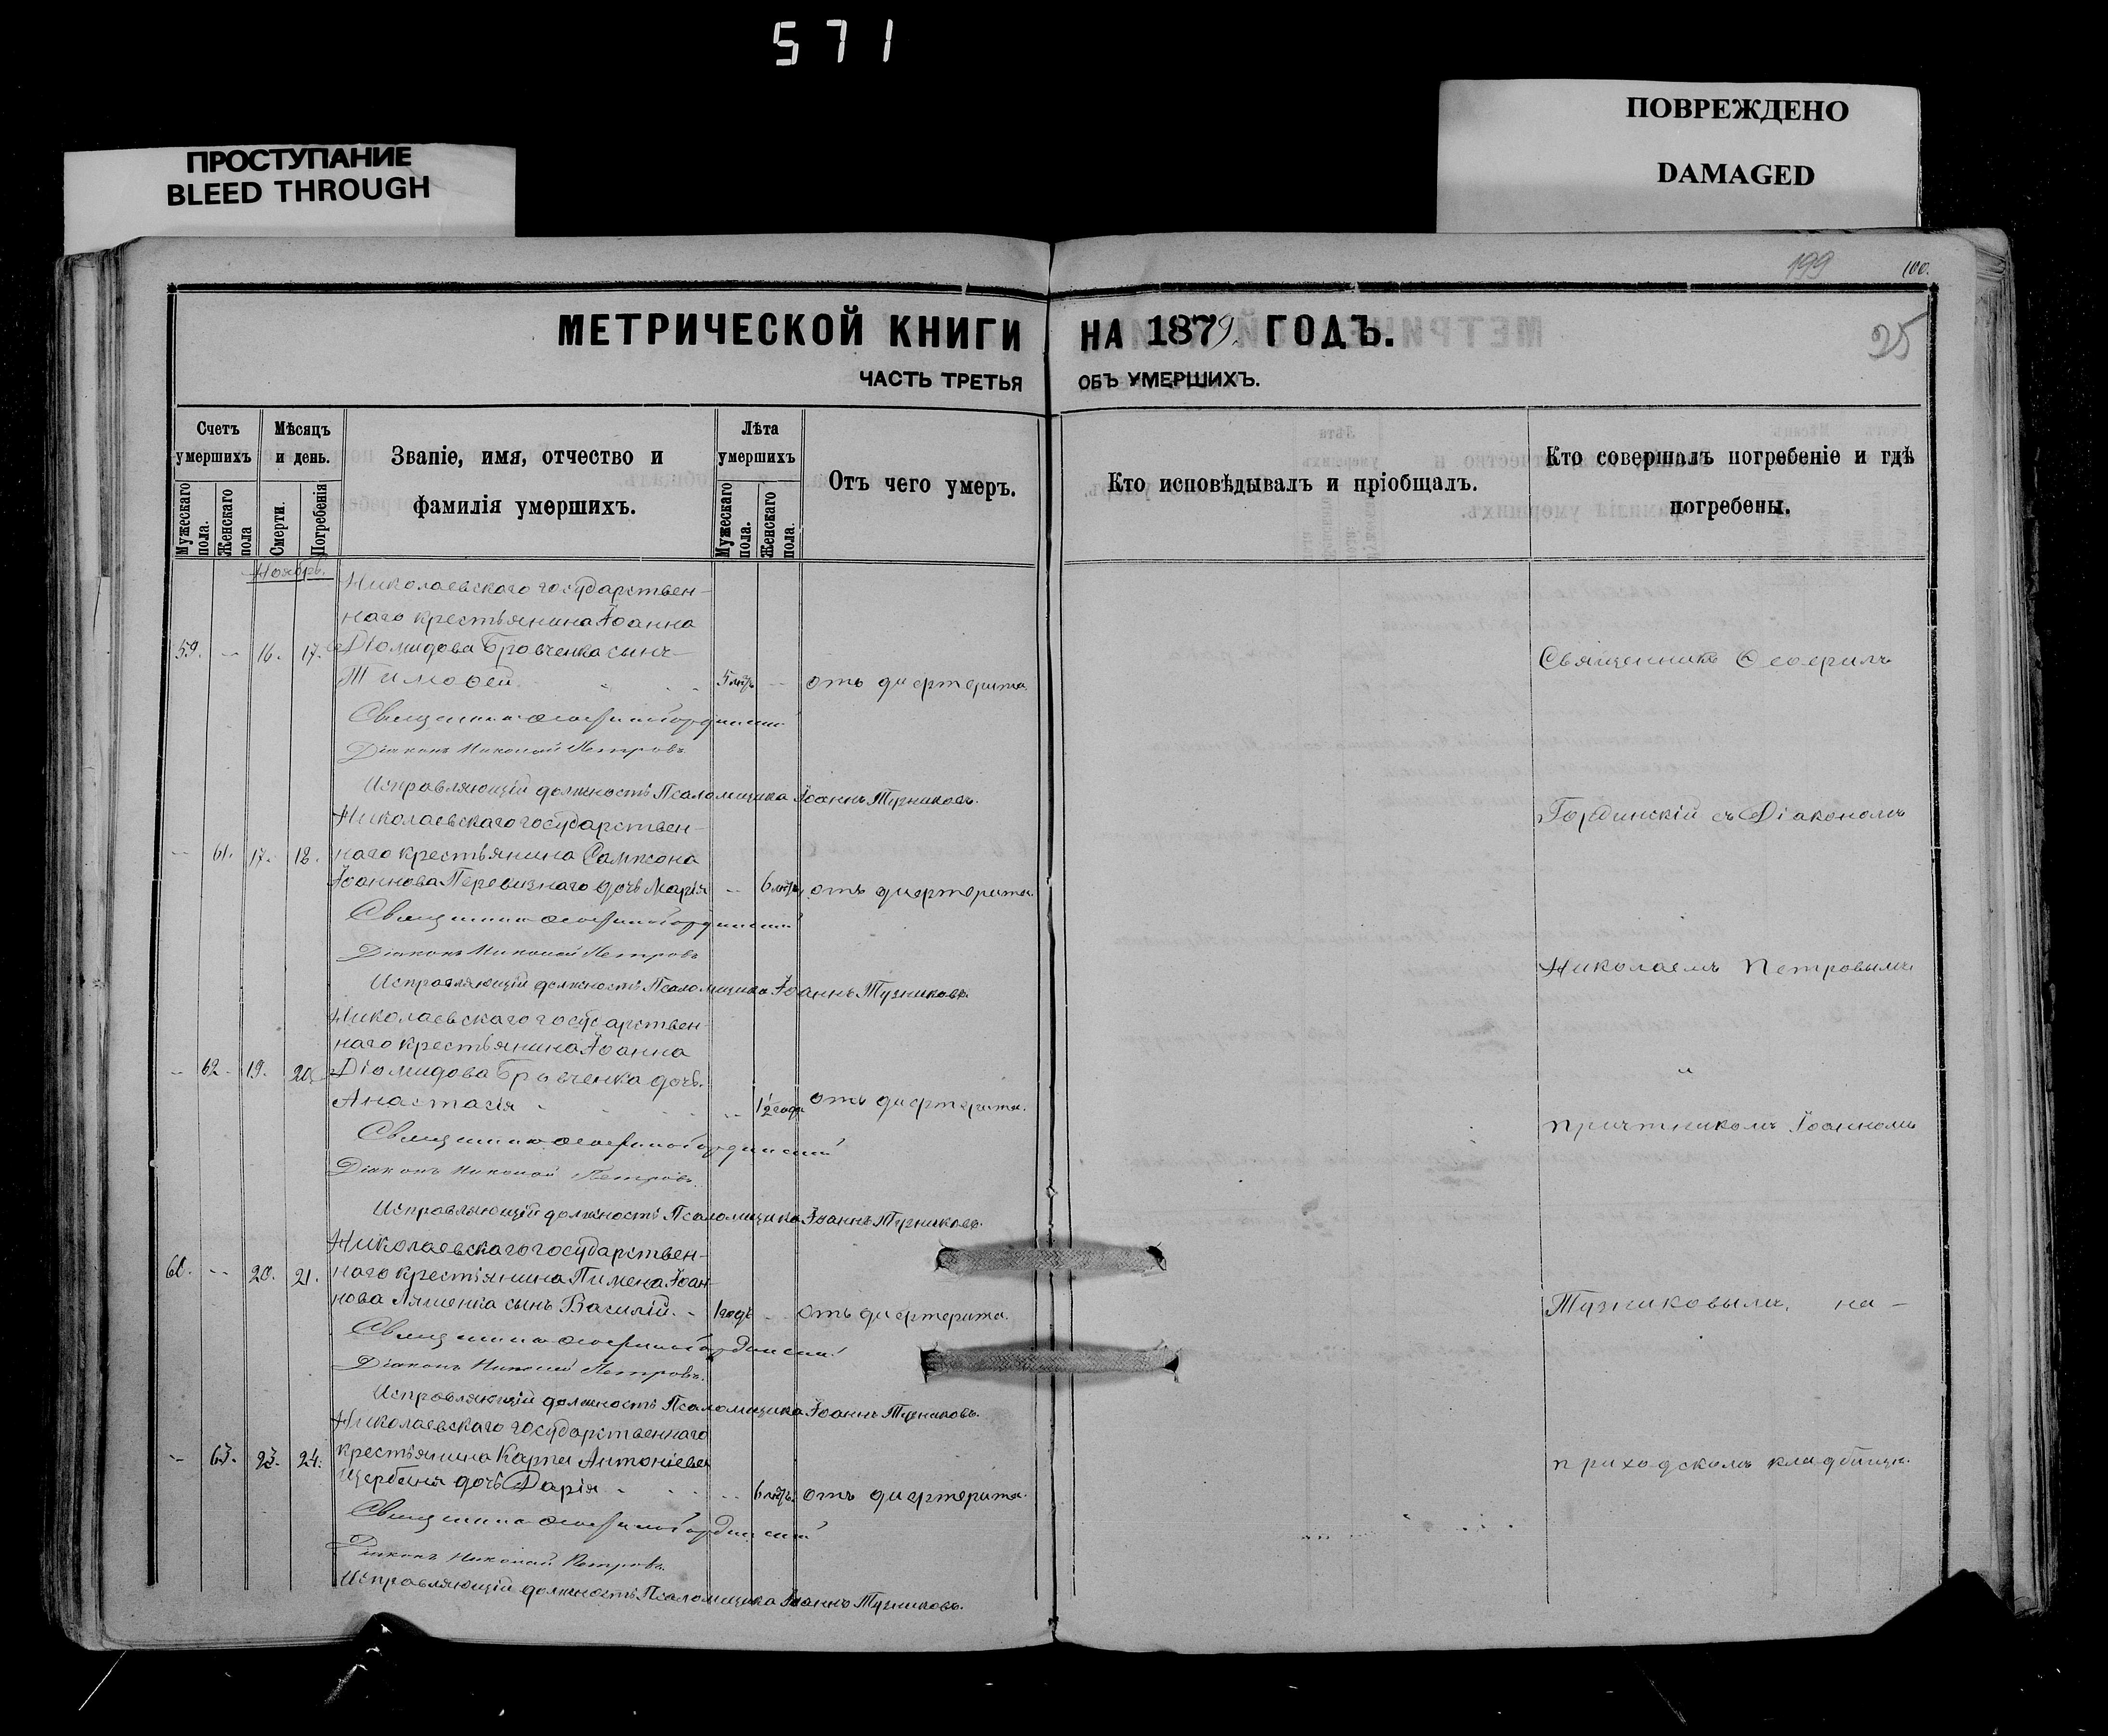 571
ПРОСТУПАНИЕ
BLEED THROUGH
ПОВРЕЖДЕНО
DAMAGED
199
100.
25
МЕТРИЧЕСКОЙ КНИГИ НА 1879 ГОДЪ.
ЧАСТЬ ТРЕТЬЯ ОБЪ УМЕРШИХЪ.
Счетъ умершихъ
Мужескаго пола.
Женскаго пола
Мѣсяцъ и день.
Смерти.
Погребенія
Званіе, имя, отчество и
фамилія умершихъ.
Лѣта умершихъ
Мужескаго пола.
Женскаго пола.
Отъ чего умеръ.
Кто исповѣдывалъ и пріобщалъ.
Кто совершалъ погребеніе и гдѣ
погребены.
Ноябрь.
Николаевскаго государствен-
наго крестьянина Іоанна
59. -- 16. 17. Діомидова Бровченка сынъ
Тимоѳей 5 лѣтъ -- отъ дифтерита
Священникъ Гординскій
Діаконъ Николай Петровъ
Исправляющій должность Псаломщика Іоаннъ Тузниковъ.
Николаевскаго государствен-
-- 61. 17. 18. наго крестьянина Сампсона
Іоаннова дочь Марія -- 6 лѣтъ отъ дифтерита.
Священникъ Гординскій
Діаконъ Николай Петровъ
Исправляющій должность Псаломщика Іоаннъ Тузниковъ.
Николаевскаго госусарствен-
наго крестьянина Іоанна
-- 62. 19. 20. Діомидова Бровченка дочь
Анастасія -- 1½ года отъ дифтерита.
Священникъ Гординскій
Діаконъ Николай Петровъ.
Исправляющій должность Псаломщика Іоаннъ Тузниковъ.
Николаевскаго государствен-
60. -- 20. 21. наго крестьянина Пимена Іоан-
нова Ляшенка сынъ Василій. 1 годъ -- отъ дифтерита.
Священникъ Гординскій
Діаконъ Николай Петровъ.
Исправляющій должность Псаломщика Іоаннъ Тузниковъ.
Николаевскаго государственнаго
-- 63. 23. 24. крестьянина Карпа Антоніева
Щербины дочь Дарія -- 6 лѣтъ. отъ дифтерита.
Священникъ Гординскій
Діаконъ Николай Петровъ.
Исправляющій должность Псаломщика Іоаннъ Тузниковъ.
Священникъ
Гординскій съ Діакономъ
Николаемъ Петровымъ
и
причтникомъ Іоанномъ
Тузниковымъ, на-
приходскомъ кладбищѣ.